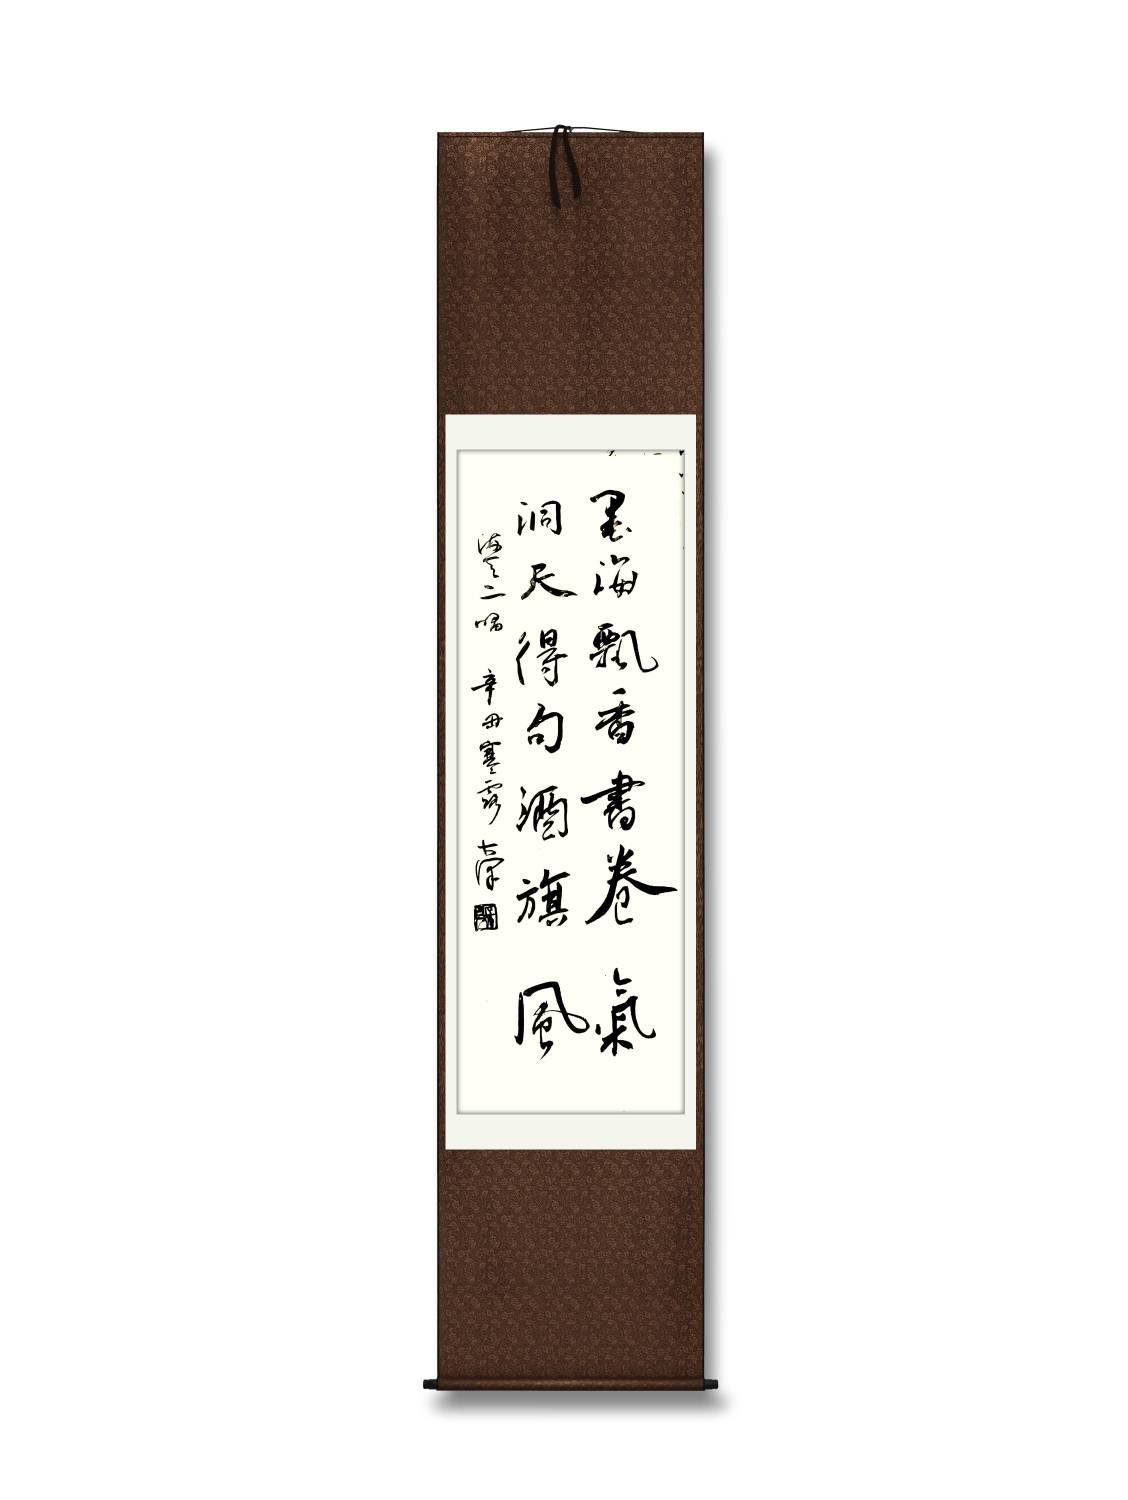 墨海飄香書卷氣
洞天得句酒旗風
海天二唱 辛丑寒露